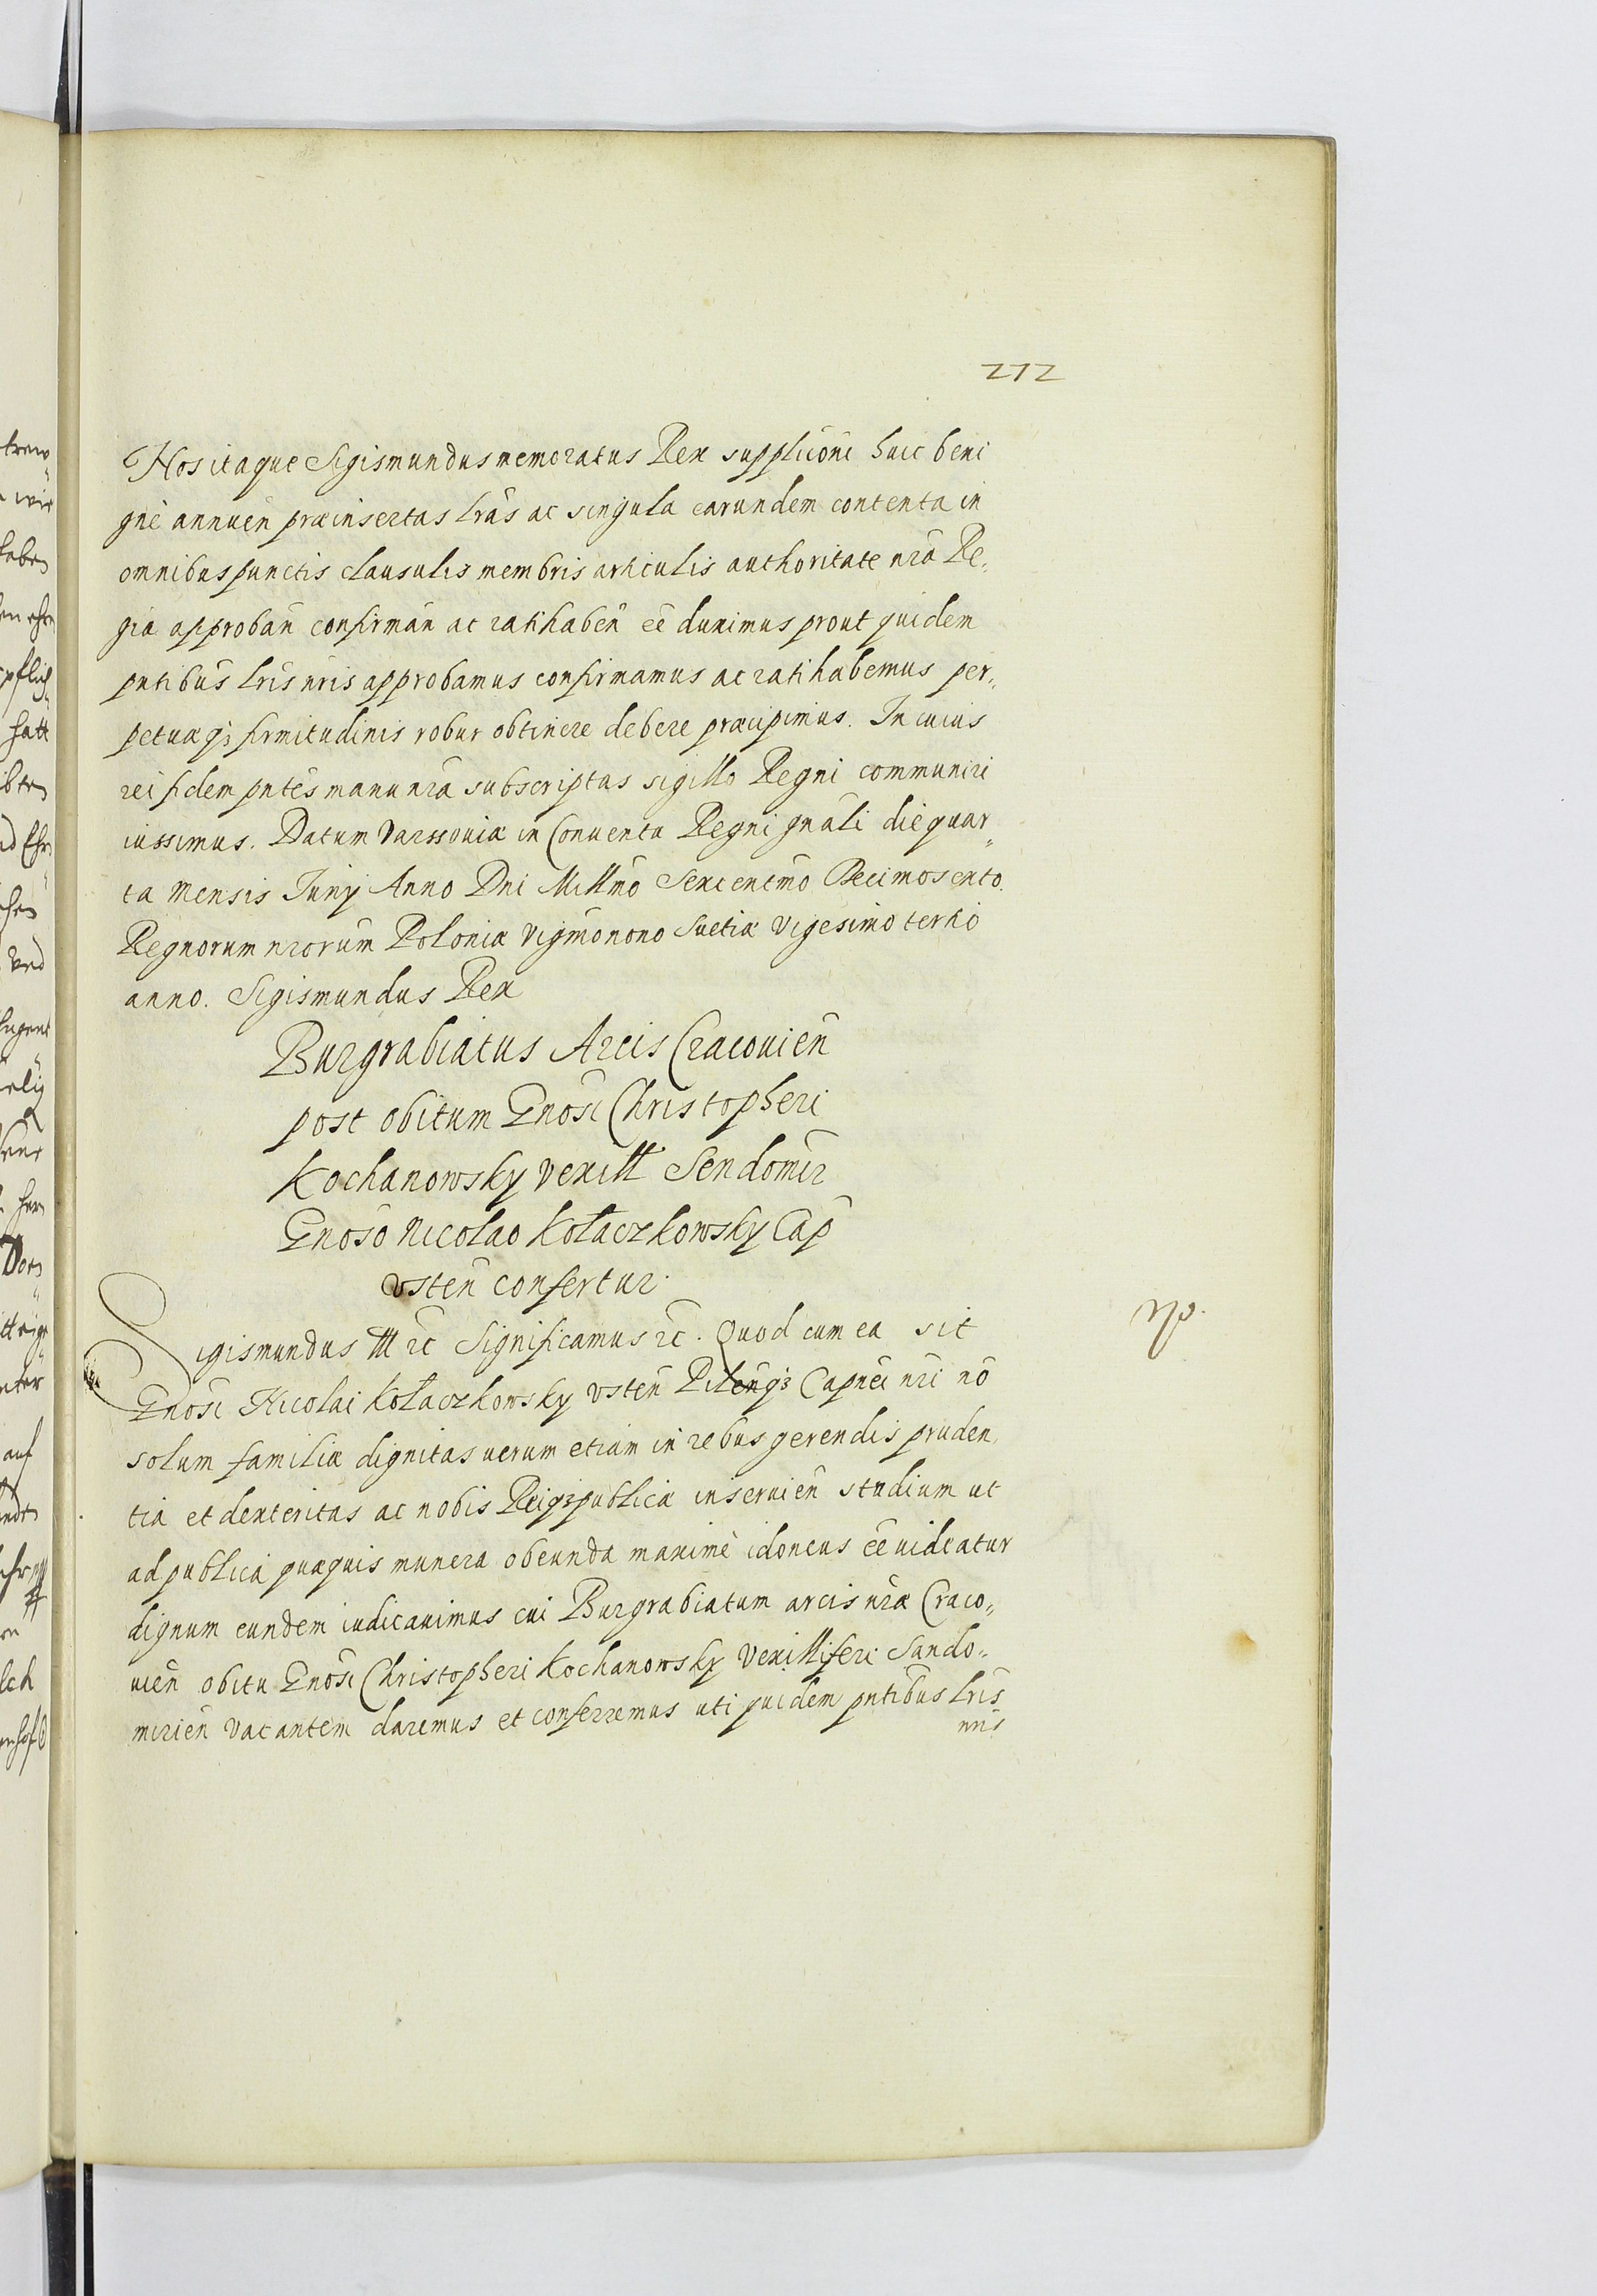 212
Nos itaque Sigismundus memoratus Rex supplicōni huic beni
gnè annuēn præinsertas lrās ac singula earundem contenta in
omnibus punctis clausulis membris articulis authoritate nrā Re„
gia approbān confirmān ac ratihabēn eē duximus prout quidem
pntibūs lrīs nrīs approbamus confirmamus ac ratihabemus per„
petuæq₃ firmitudinis robur obtinere debere præcipimus. In cuius
rei fidem pntēs manu nrā subscriptas sigillo Regni communiri
iussimus. Datum Varssouiæ in Conuentu Regni gnāli die quar„
ta mensis Iunij Anno Dni Millmō Sexcentmō Decimosexto.
Regnorum nrorūm Poloniæ Vigmōnono Suetiæ Vigesimo tertio
anno. Sigismundus Rex
Burgrabiatus Arcis Cracouiēn
post obitum Gnosī Christopheri
Kochanowsky Vexill Sendomīr
Gnosō Nicolao Kołaczkowsky Cāp
Vstēn confertur.
Sigismundus III rc̄ Significamus rc̄. Quod cum ea sit
Gnosī Nicolai Kołaczkowsky Vstēn Pilēnq₃ Capnēi nrī nō
solum familiæ dignitas uerum etiam in rebus gerendis pruden„
tia et dexteritas ac nobis Reiq₃publicæ inseruiēn studium ut
ad publica quæquis munera obeunda maximè idoneus eē uideatur
dignum eundem iudicauimus cui Burgrabiatum arcis nrǣ Craco„
uiēn obitu Gnosī Christopheri Kochanowsky Vexilliferi Sando„
miriēn vacantem daremus et conferremus uti quidem pntibūs lrīs
nrīs